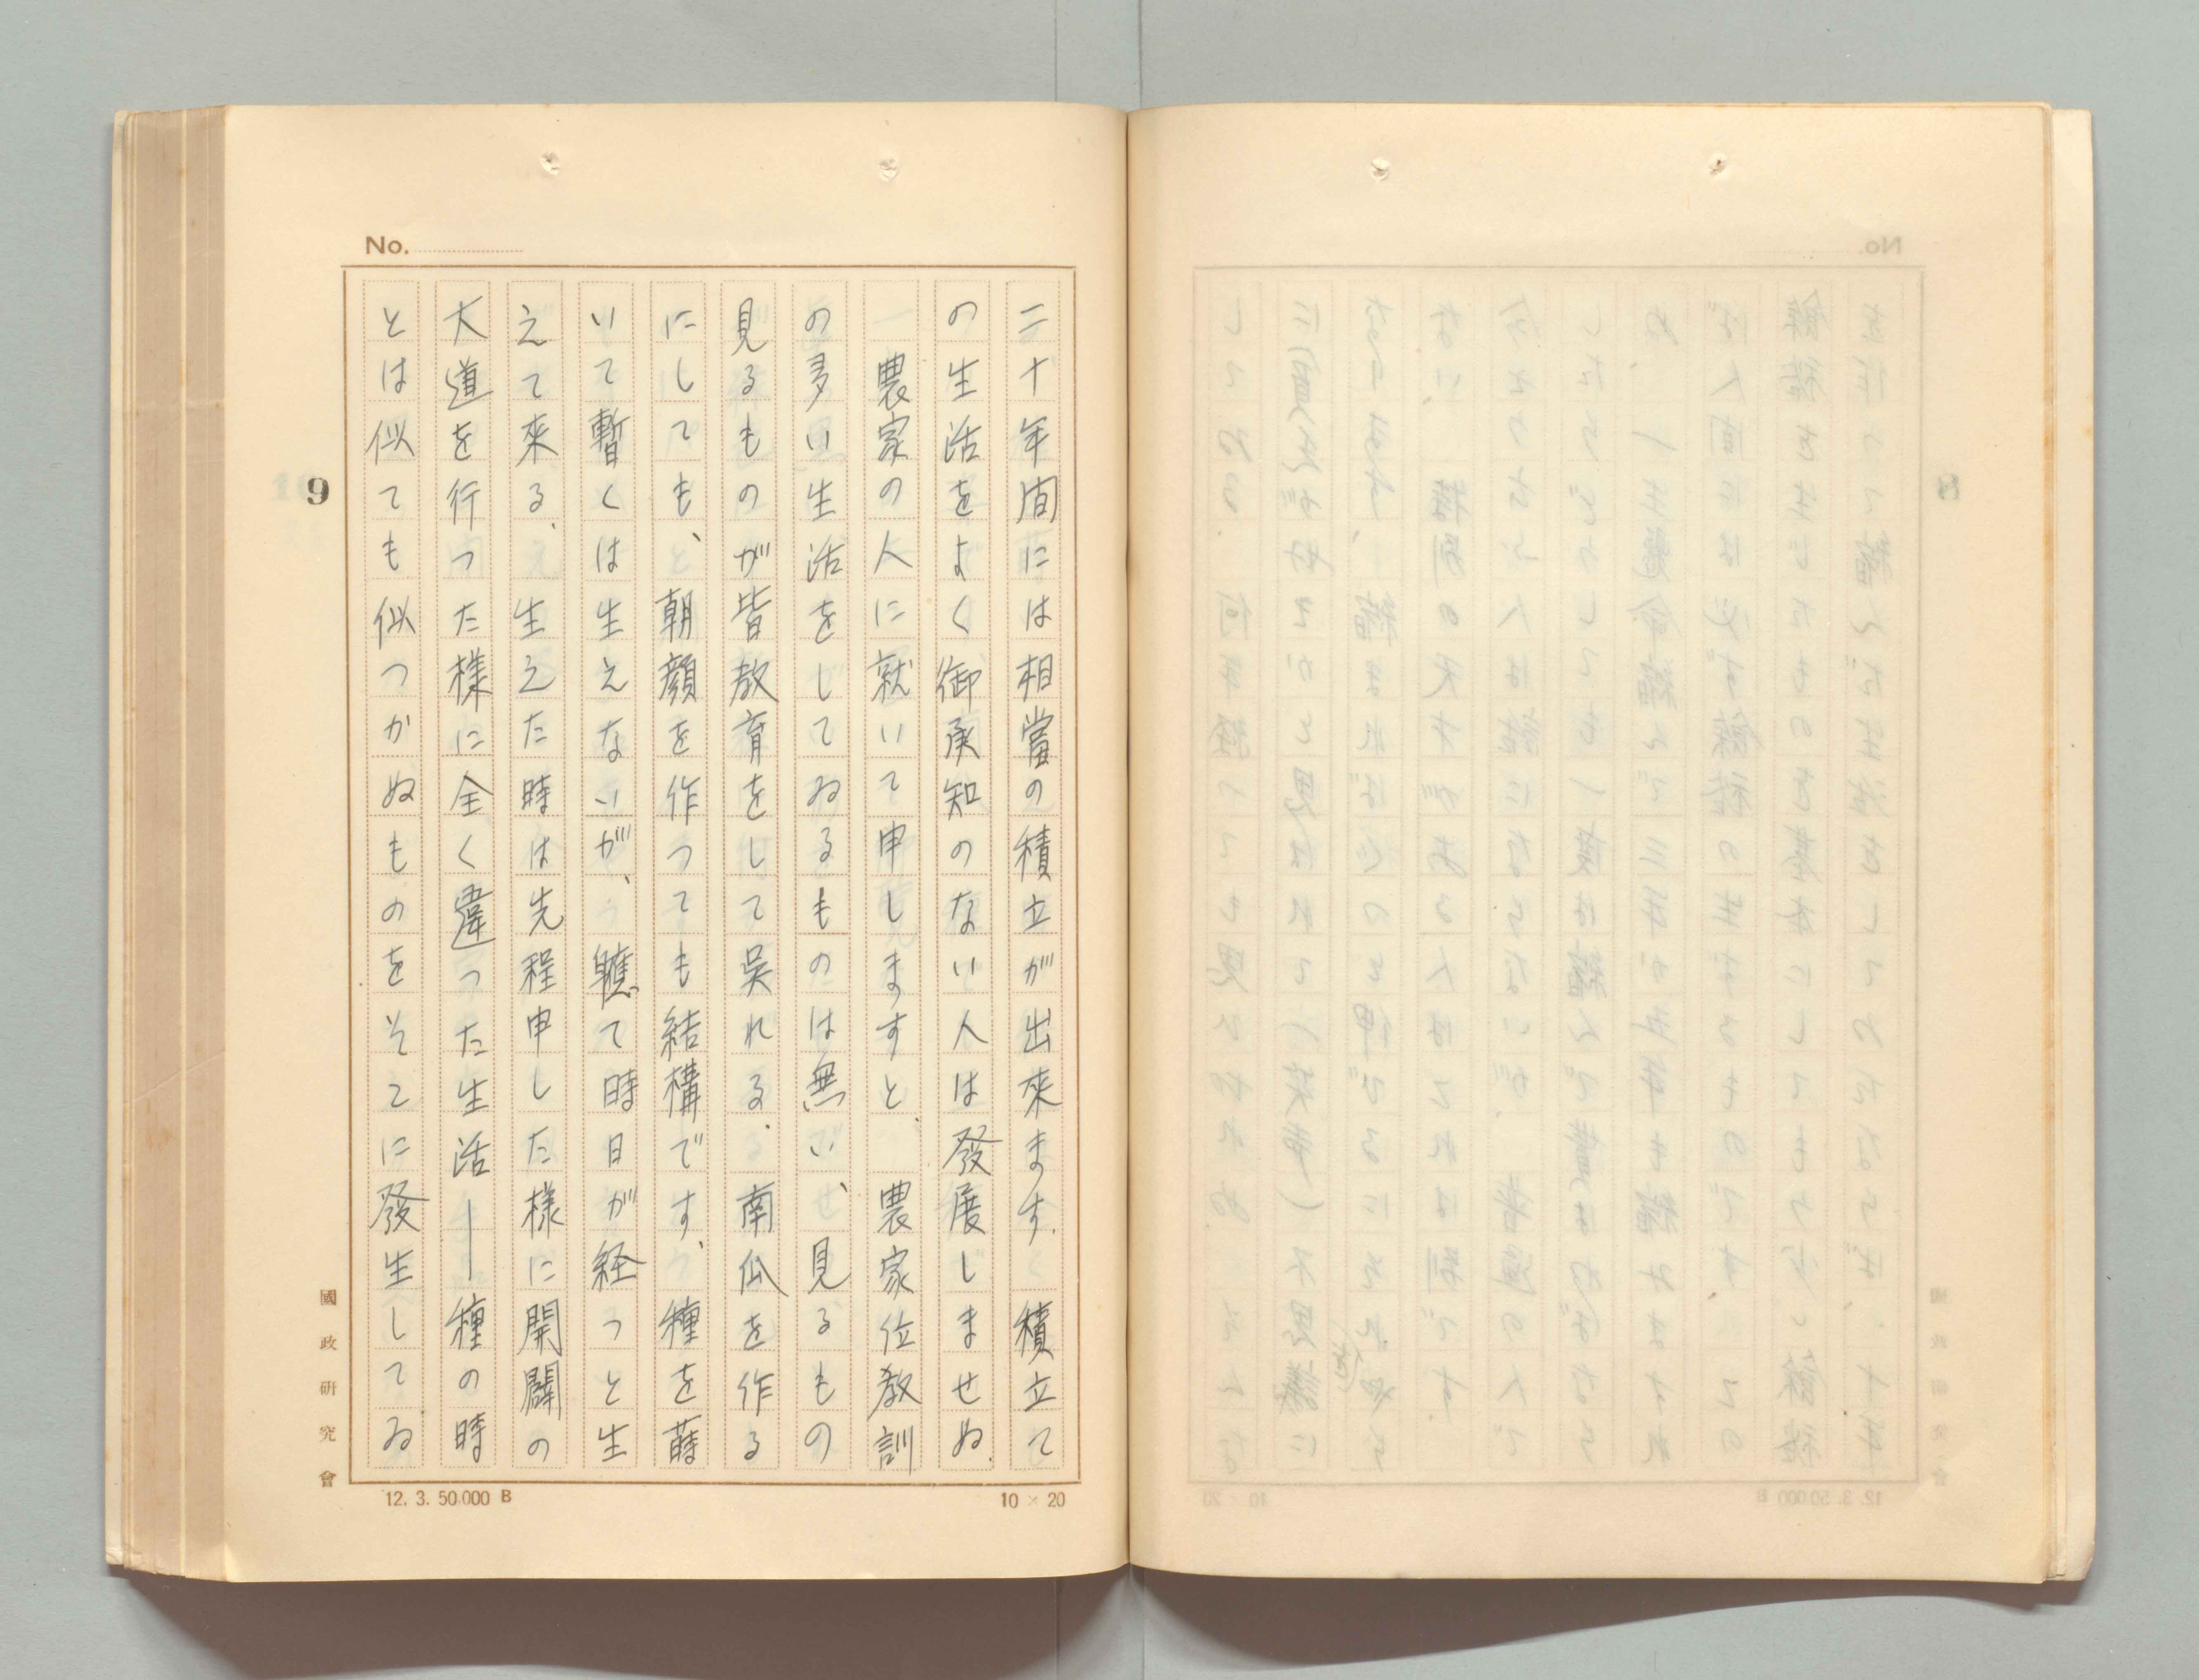 No.
二十年間には相當の積立が出來ます。積立て
の生活をよく御承知のない人は發展しませぬ。
農家の人に就いて申しますと、農家位教訓
の多い生活をしてゐるものは無い、見るもの
見るものが皆教育をして呉れる。南瓜を作る
にしても、朝顔を作つても結構です、種を蒔
いて暫くは生えないが、軈て時日が経つと生
えて來る、生えた時は先程申した様に開闢の
大道を行つた様に全く違つた生活――種の時
とは似ても似つかぬものをそこに發生してゐ
9
國政研究會
12. 3. 50,000 B
10 × 20